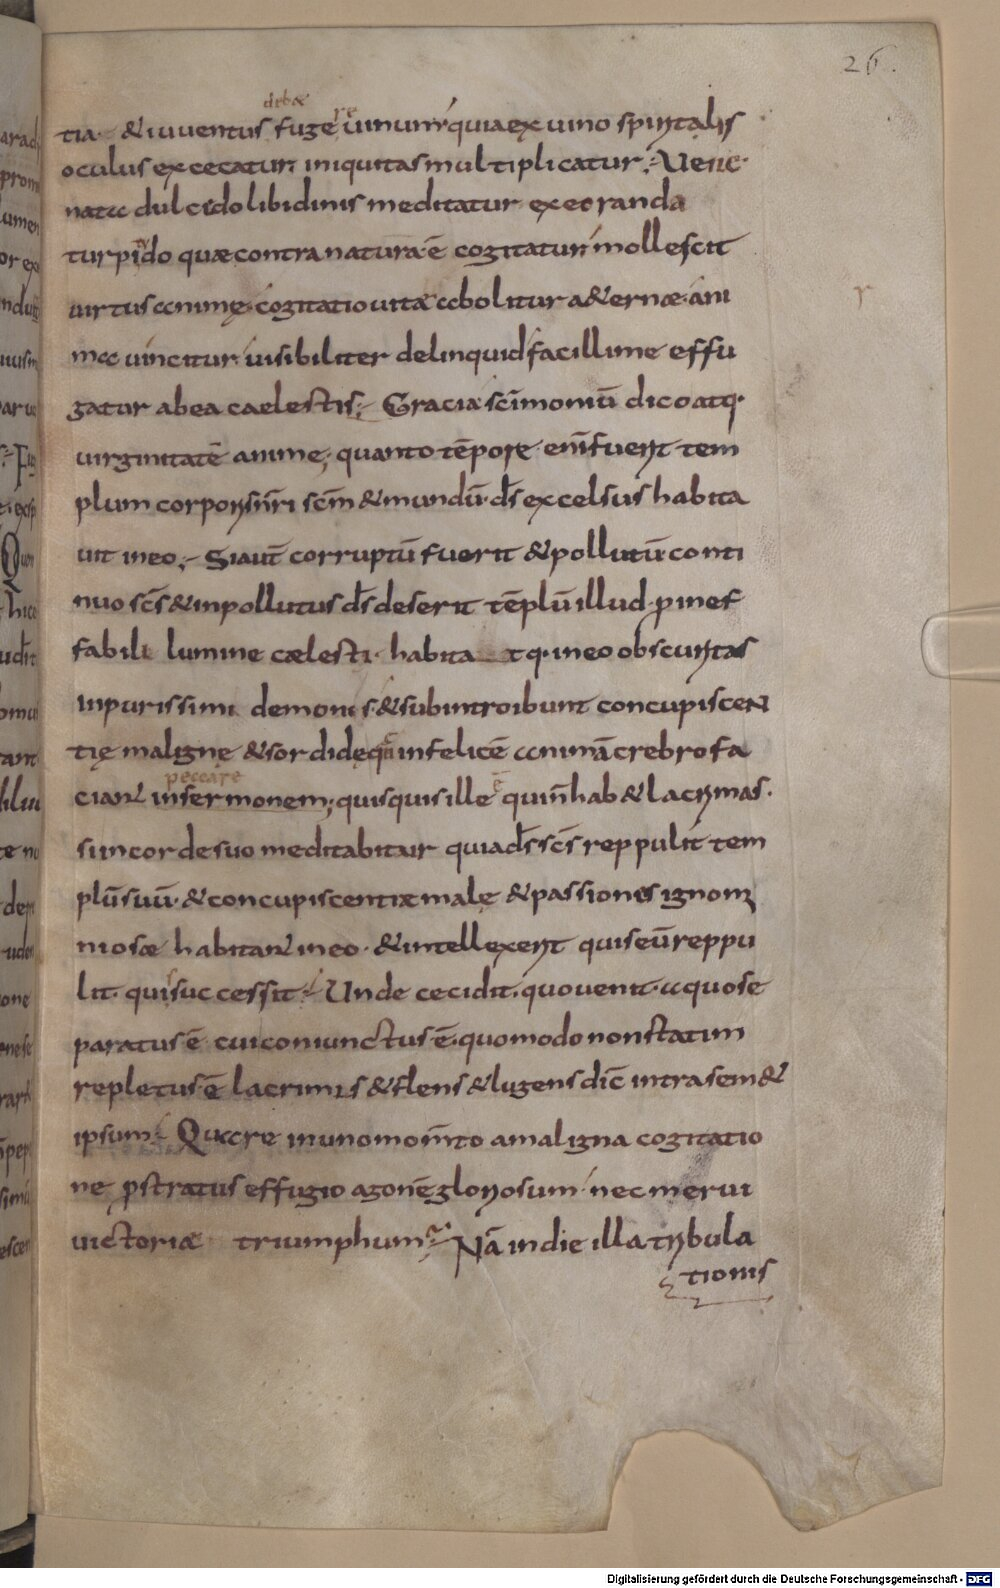 26.
debæ
tia & iuuentus fugere uinum quia ex uino spiritalis
oculus excecatur iniquitas multiplicatur; Uene
nata dulcido libidinis meditatur execranda
turpido quæ contra naturā ē cogitatur mollescit
uirtus animę cogitatio uitæ abolitur a&ernæ ani
ma uincitur uisibiliter delinquid facillime effu
gatur ab ea caelestis; Gracia sc̄imoniū dico atq·
uirginitatē anime; quanto tēpore enī fuerit tem
plum corporis nr̄i sc̄m & mundū d̄s excelsus habita
uit in eo; Si aut̄ corruptū fuerit & pollutū conti
nuo sc̄s & inpollutus d̄s deserit tēplū illud p inef
fabili lumine cælesti habita tq· in eo obscuritas
inpurissimi demonis & subintroibunt concupiscen
tię malignę & sordidę quę infelicē animā crebro fa
peccare
ciant in sermonem; quisquis ille ē qui n̄ hab& lacrimas
si in corde suo meditabitur quia d̄s sc̄s reppulit tem
plū suū & concupiscentiæ malę & passiones ignomi
niosæ habitant in eo & intellexerit quis eū reppu
lit quis uccessit Unde cecidit quo uenit a quo se
paratus ē cui coniunctus ē quomodo non statim
repletus ē lacrimis & flens & lugens dic̄ intra sem&
ipsum Quare in uno mom̄to a maligna cogitatio
ne pstratus effugio agonē gloriosum nec merui
uictoriæ triumphum Nā in die illa tribula
tionis
Digitalisierung gefördert durch die Deutsche Forschungsgemeinschaft - DFG